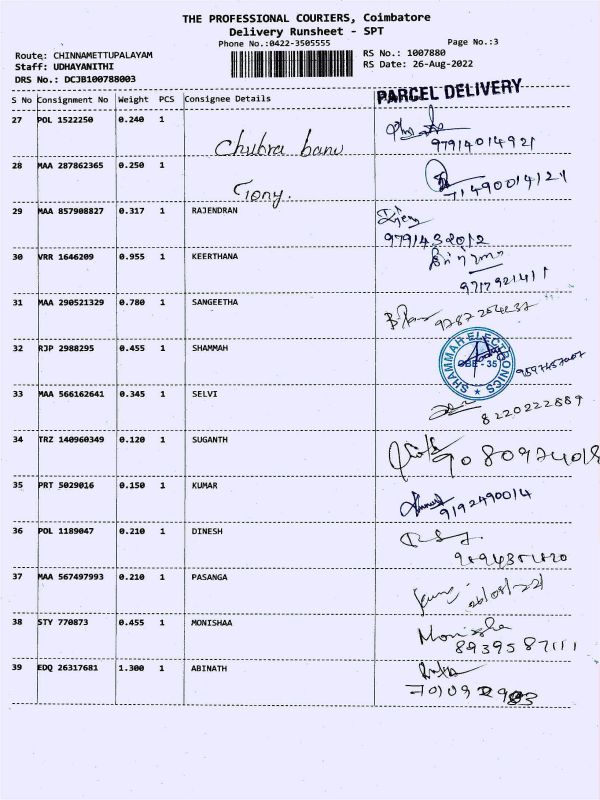 THE PROFESSIONAL COURIERS, Coimbatore
Delivery Runsheet - SPT
Phone No.:0422-3505555 Page No.:3
Route: CHINNAMETTUPALAYAM RS No.: 1007880
Staff: UDHAYANITHI RS Date: 26-Aug-2022
DRS No.: DCJB100788003
S No Consignment No Weight PCS Consignee Details PARCEL DELIVERY
27 POL 1522250 0.240 1 Chubra banu
97914014921
28 MAA 287862365 0.250 1 Tony.
29 MAA 857908827 0.317 1 RAJENDRAN
9791432012
30 VRR 1646209 0.955 1 KEERTHANA
9717921411
31 MAA 290521329 0.780 1 SANGEETHA
32 RJP 2988295 0.455 1 SHAMMAH
SHAMMAH ELECTRONICS
CBE - 35
33 MAA 566162641 0.345 1 SELVI
8220222889
34 TRZ 140960349 0.120 1 SUGANTH
9080974018
35 PRT 5029016 0.150 1 KUMAR
9192490014
36 POL 1189047 0.210 1 DINESH
37 MAA 567497993 0.210 1 PASANGA
26/08/22
38 STY 770873 0.455 1 MONISHAA
Monisha
8939587111
39 EDQ 26317681 1.300 1 ABINATH